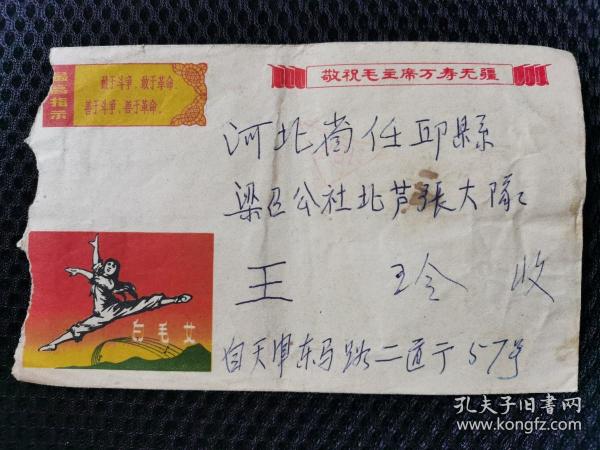 最高指示
敢于斗争、敢于革命，
善于斗争、善于革命。
敬祝毛主席万寿无疆
河北省任邱縣
梁召公社北芦張大隊
王 玲 收
白毛女
自天津东马路二道于57号
孔夫子旧书网
www.kongfz.com